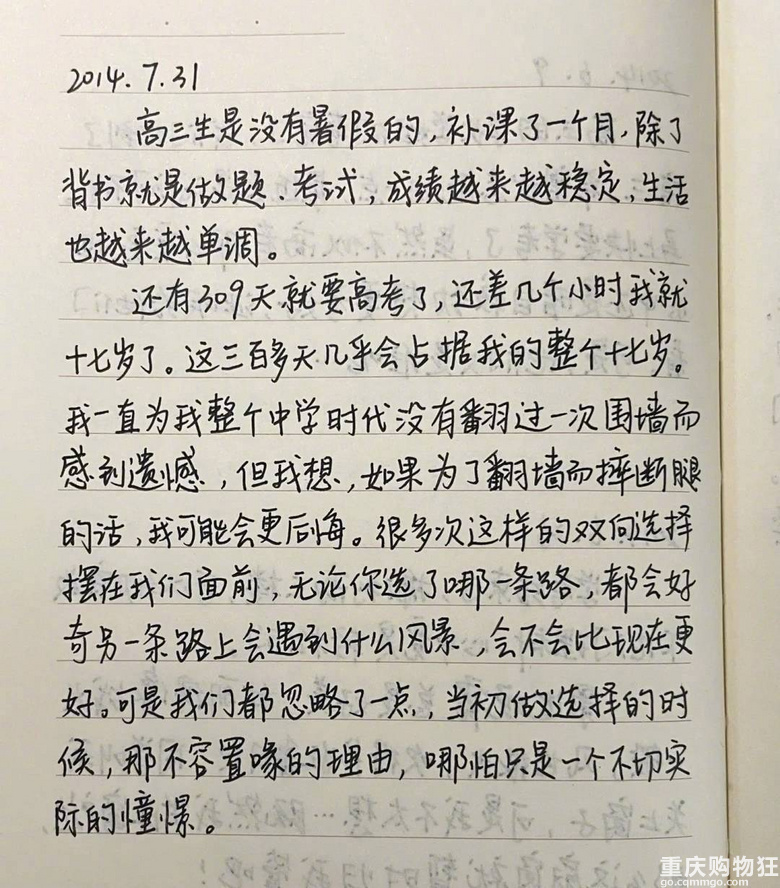 2014.7.31
高三生是没有暑假的,补课了一个月,除了
背书就是做题、考试,成绩越来越稳定,生活
也越来越单调。
还有309天就要高考了,还差几个小时我就
十七岁了。这三百多天几乎会占据我的整个十七岁。
我一直为我整个中学时代没有翻过一次围墙而
感到遗憾,但我想,如果为了翻墙而摔断腿
的话,我可能会更后悔。很多次这样的双向选择
摆在我们面前,无论你选了哪一条路,都会好
奇另一条路上会遇到什么风景,会不会比现在更
好。可是我们都忽略了一点,当初做选择的时
候,那不容置喙的理由,哪怕只是一个不切实
际的憧憬。
重庆购物狂
go.cqmmgo.com